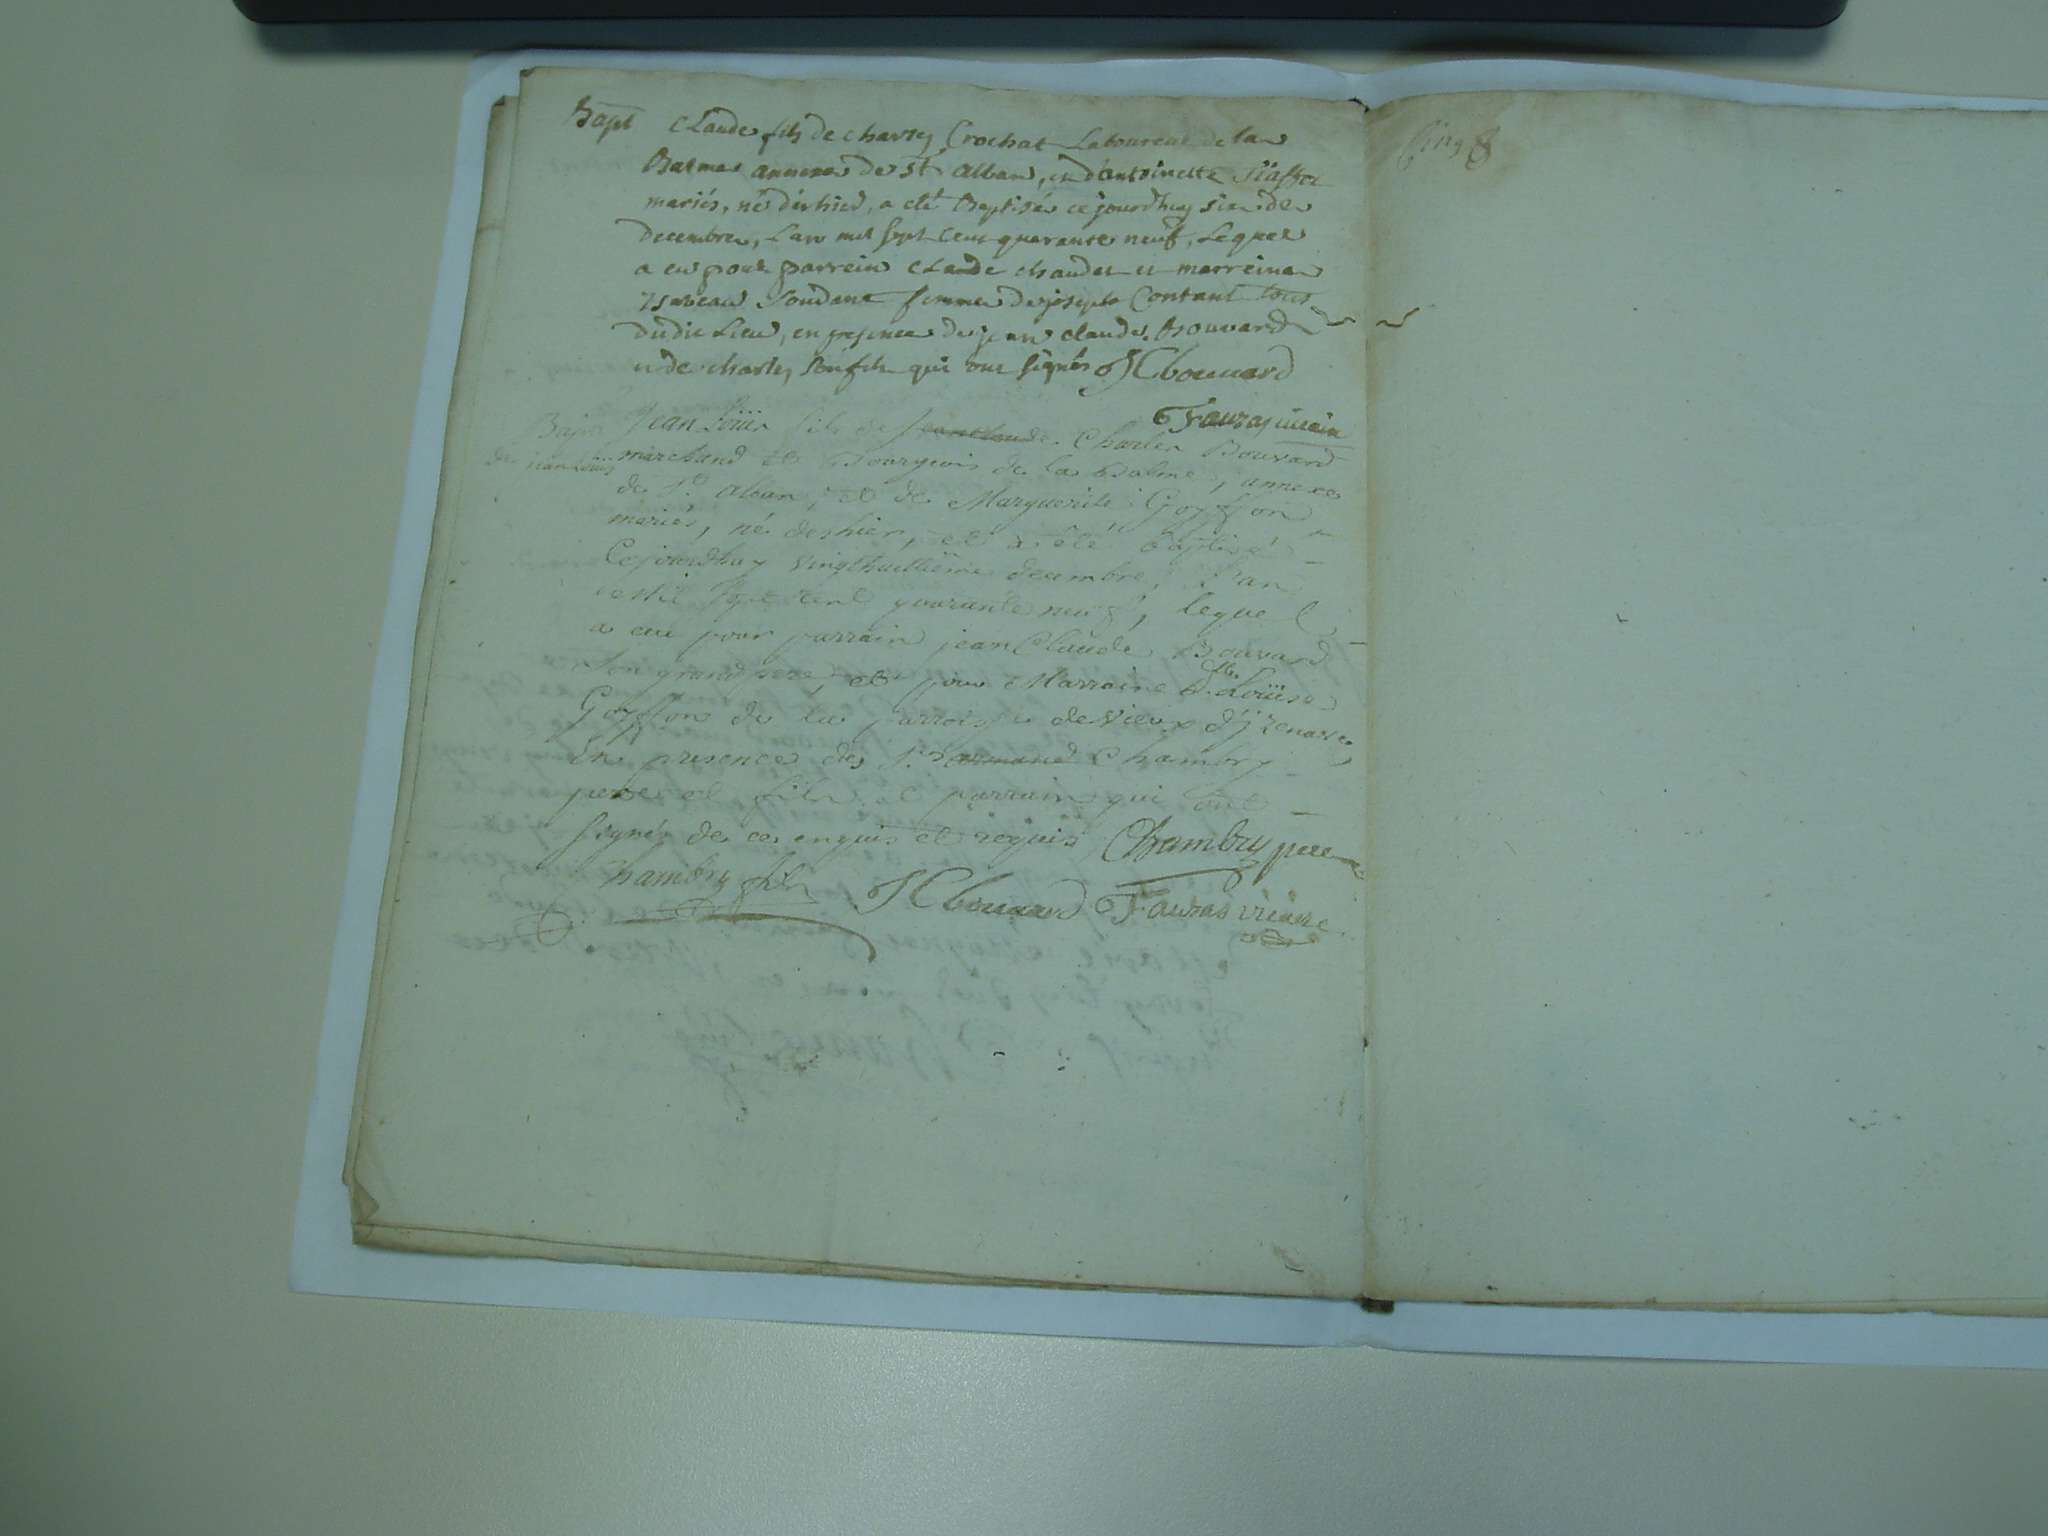 Bapt Claude fils de charles Crochat Laboureur de la
Balme annexe de St Alban, et d'antoinette
mariés, né d'erhier, a eté Baptisé ce jourdhuy six de
Decembre, L'an mil sept cent quarante neuf, Lequel
a eu pour parrein Claude chaudet et marreine
ysabeau femme de joseph Contant tous
dudit Lieu, en presence de jean claude Bouvard
et de charles son fils qui ont signés JCbouuard
Fauras vicaire
Bapt. Jean Loüis fils de Jean claude Charles Bouvard
de jean Loüis marchand et Bourgeois de la Balme, annexe
de St. Alban, et de Marguerite Goÿffon
mariés, né deshier, et a été baptisé
Cejourdhuy vingthuittiême decembre, L'an
mil sept cent quarante neuf, lequel
a eu pour parrain jean Claude Bouvard
son grand pere, et pour Marraine dlle. Loüise
Goÿffon de la parroisse de Vieux d'jzenave
En presence des Srs Chambry
pere et fils et parrain qui ont
signés de ce enquis et requis Chambry pere
Chambry fils JCbouuard Fauras vicaire